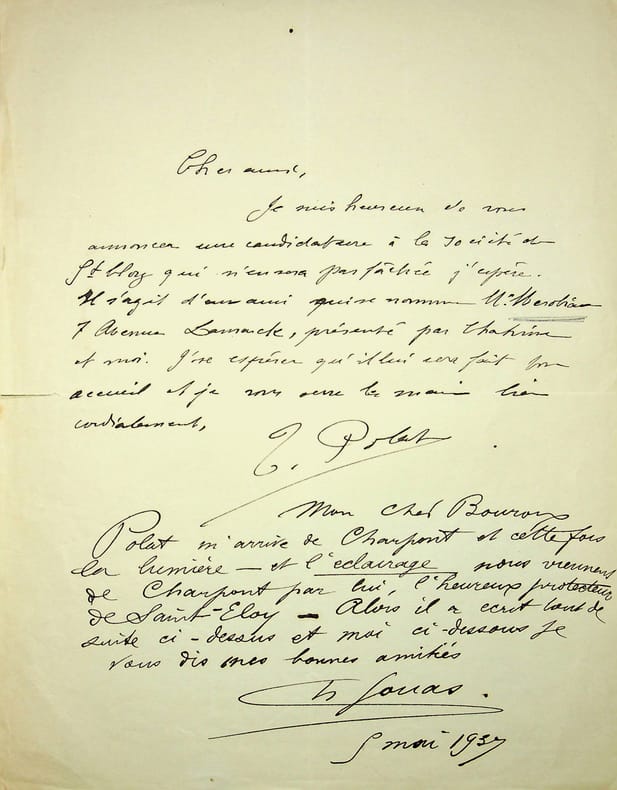 Cher ami,
Je suis heureux de vous
annoncer une candidature à la Société de
St Eloy qui n'en sera pas fâchée j'espère.
Il s'agit d'un ami qui se nomme Mr
7 Avenue Lamarck, présenté par
et moi. J'ose espérer qu'il lui sera fait bon
accueil et je vous serre la main bien
cordialement,
Polat
Mon cher Bouroux
Polat m'arrive de Charpont et cette fois
la lumière — et l'eclairage nous viennent
de Charpont par lui, l'heureux protecteur
de Saint-Eloy — Alors il a ecrit tout de
suite ci-dessus et moi ci-dessous je
vous dis mes bonnes amitiés
Gouas.
5 mai 1937